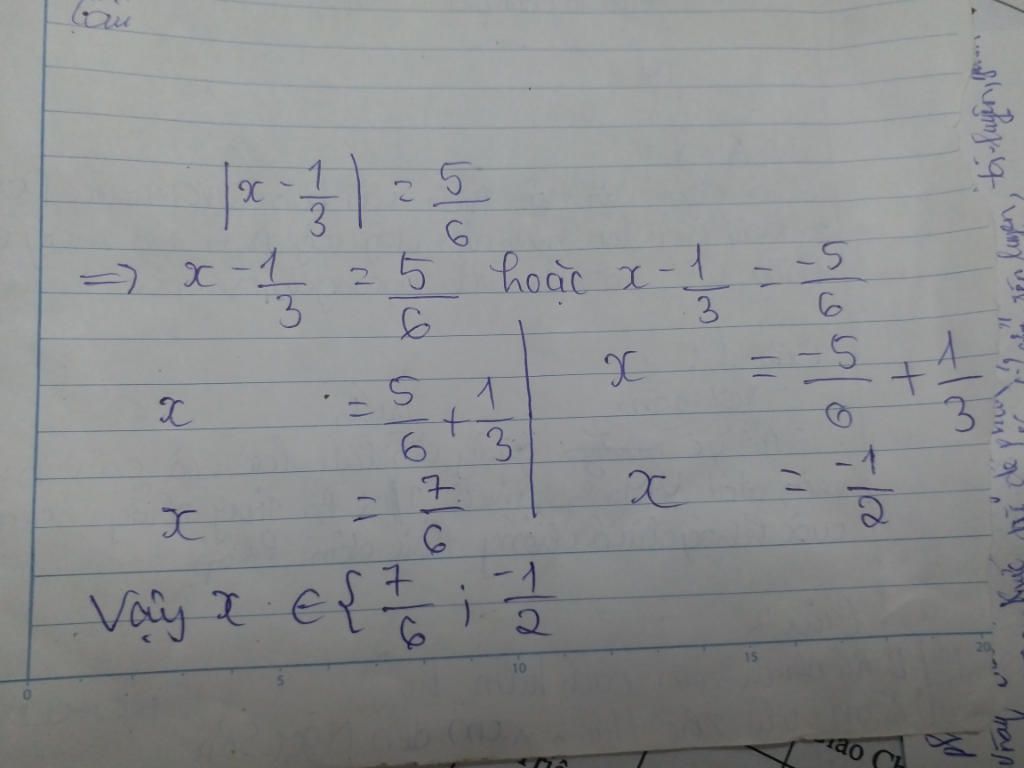 Câu
|x - 1/3| = 5/6
=> x - 1/3 = 5/6 hoặc x - 1/3 = -5/6
x = 5/6 + 1/3
x = -5/6 + 1/3
x = 7/6
x = -1/2
Vậy x ∈ {7/6 ; -1/2
0 5 10 15 20